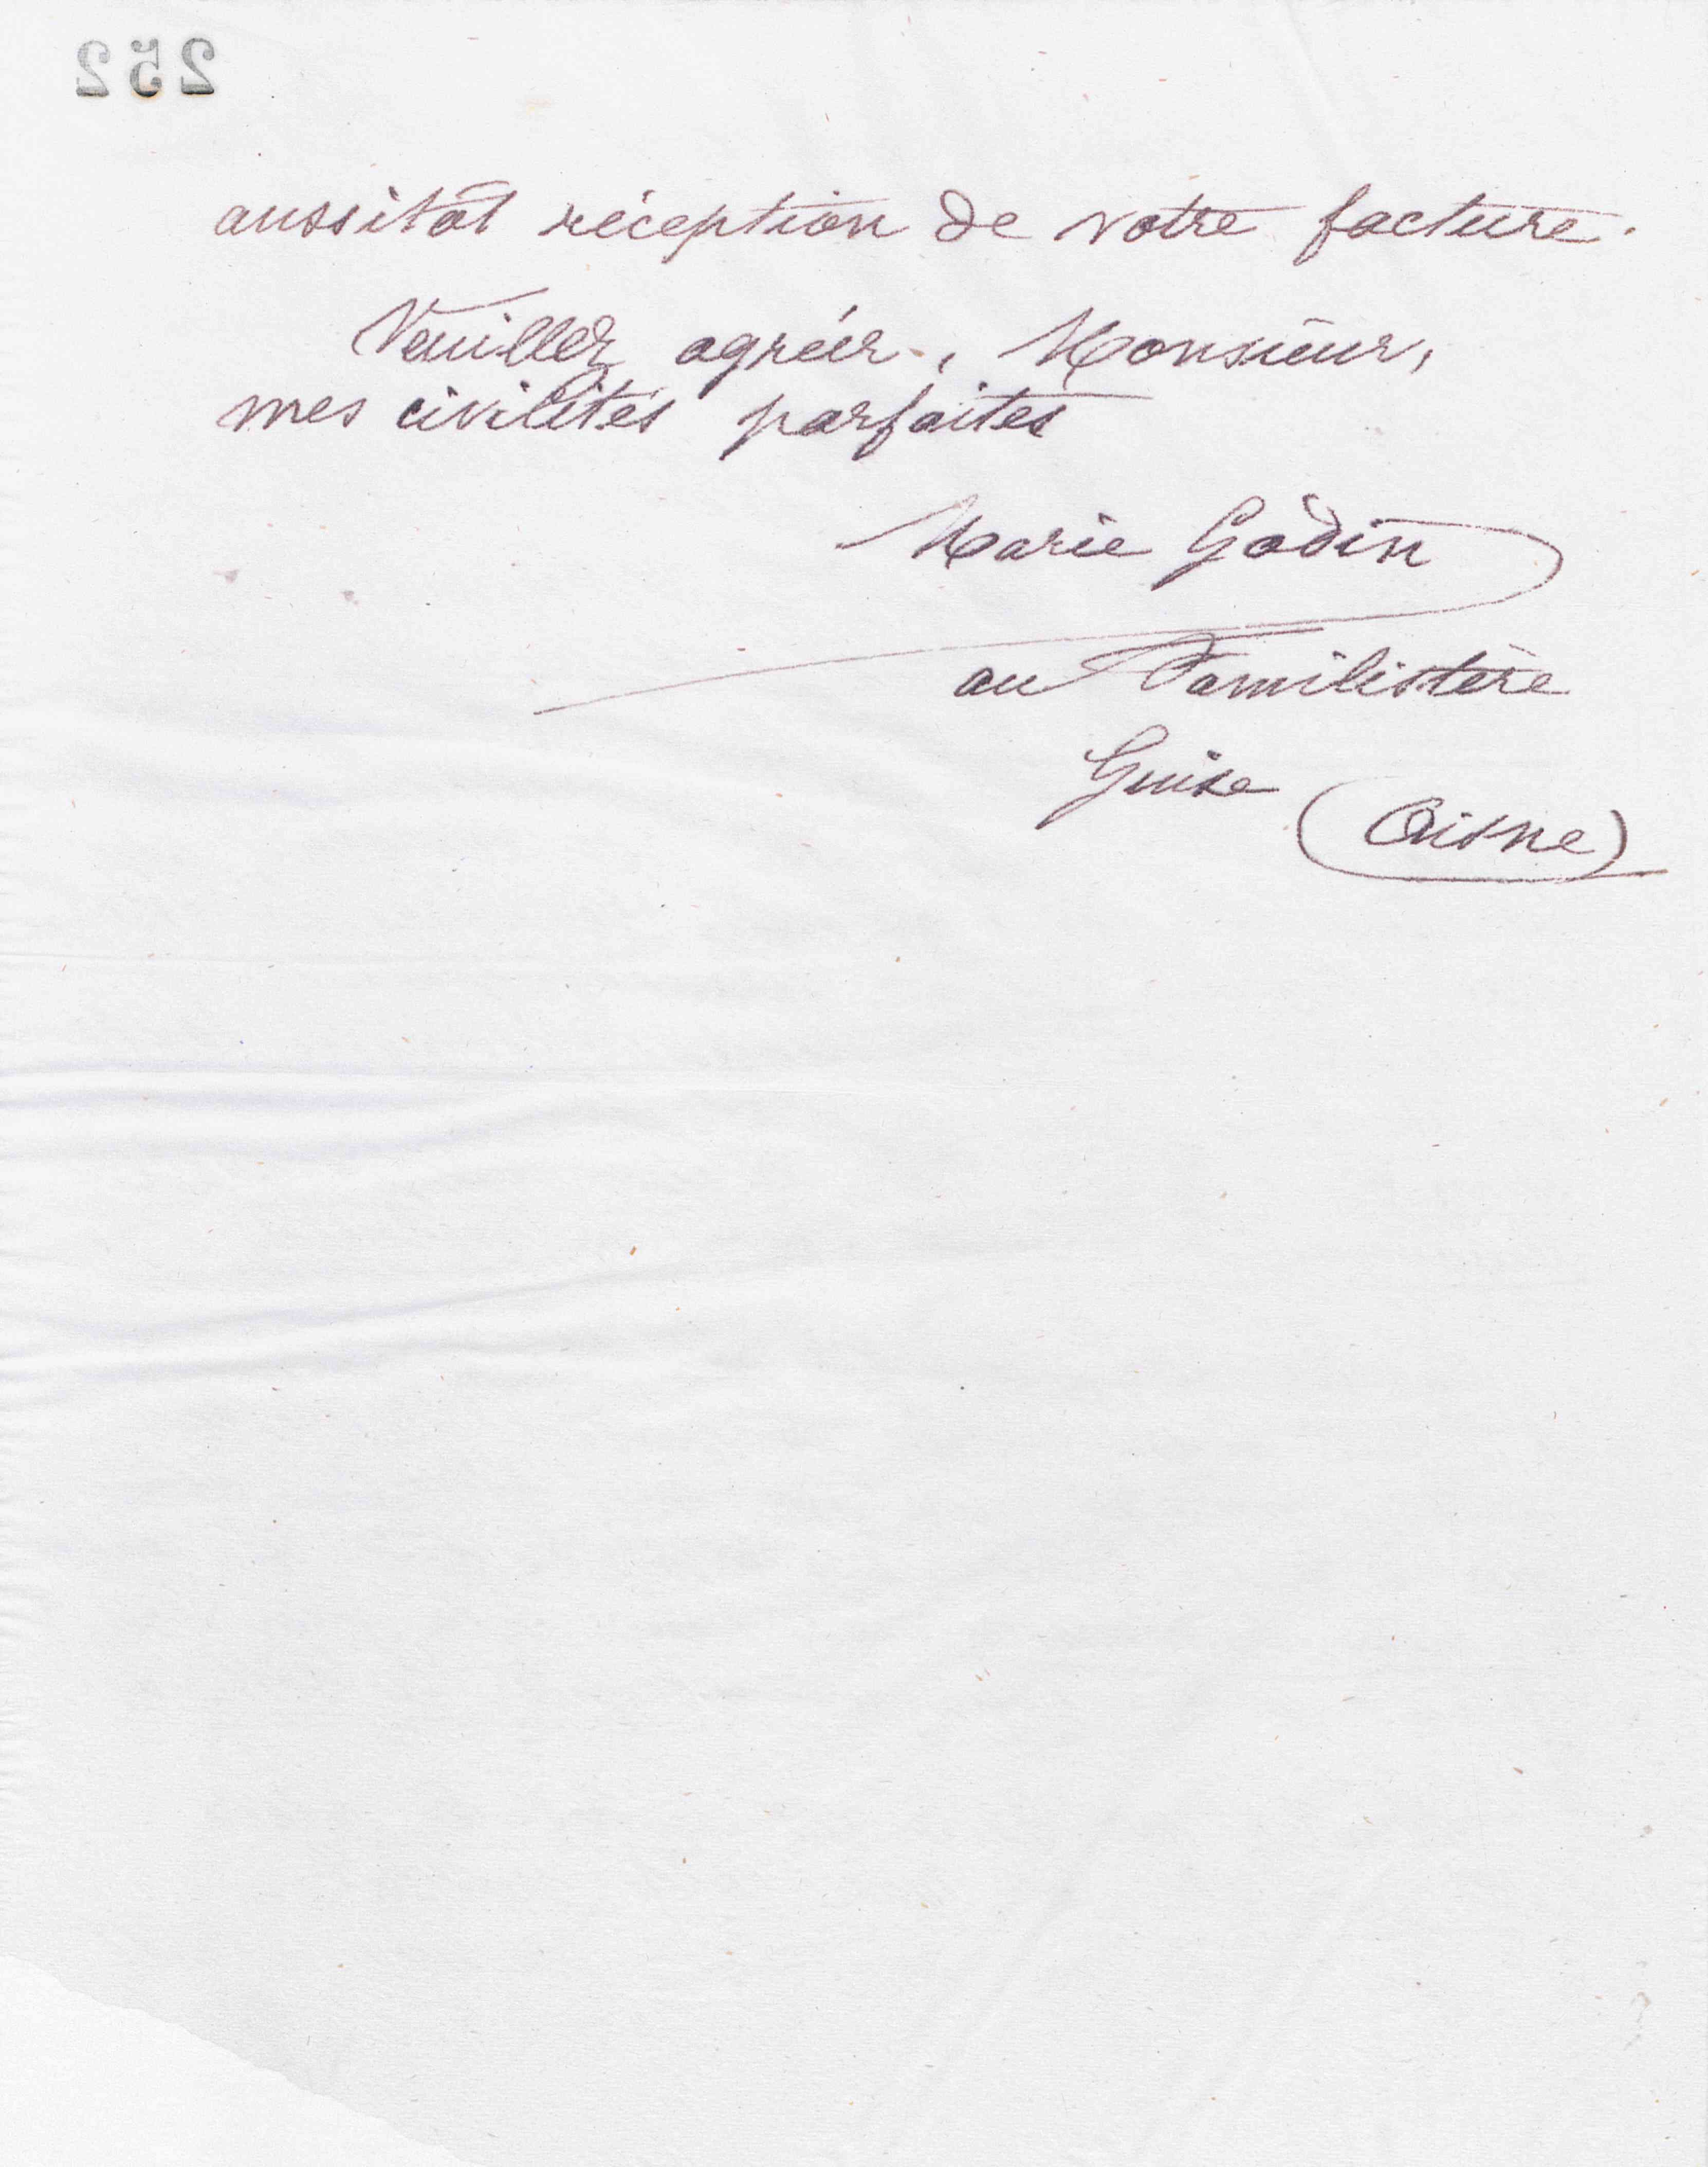 252
aussitôt réception de votre facture.
Veuillez agréer, Monsieur,
mes civilités parfaites
Marie Godin
au Familistère
Guise (Aisne)